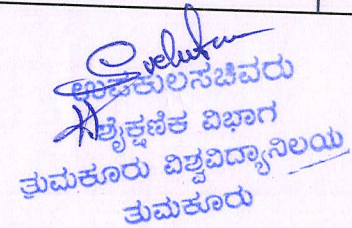 ಉಪಕುಲಸಚಿವರು
ಶೈಕ್ಷಣಿಕ ವಿಭಾಗ
ತುಮಕೂರು ವಿಶ್ವವಿದ್ಯಾನಿಲಯ
ತುಮಕೂರು